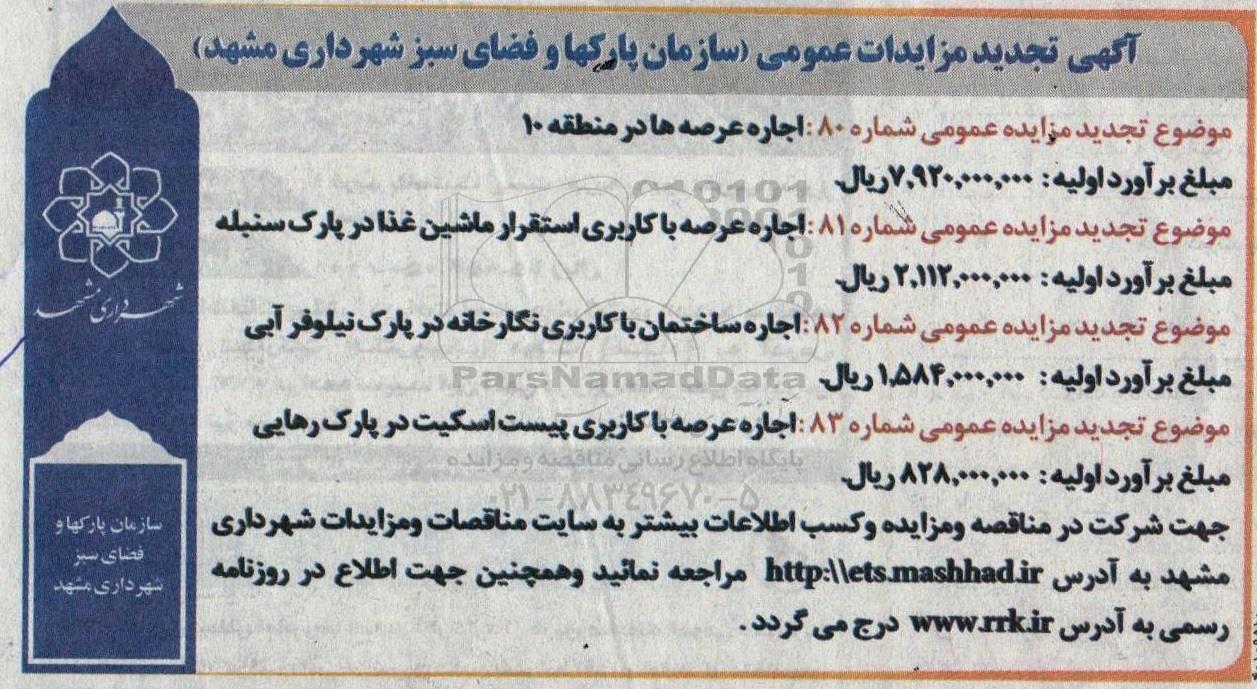 آگهی تجدید مزایدات عمومی (سازمان پارکها و فضای سبز شهرداری مشهد)
موضوع تجدید مزایده عمومی شماره ۸۰ :اجاره عرصه ها در منطقه ۱۰
مبلغ برآورد اولیه : ۷,۹۲۰,۰۰۰,۰۰۰ ریال.
موضوع تجدید مزایده عمومی شماره ۸۱ :اجاره عرصه با کاربری استقرار ماشین غذا در پارک سنبله
مبلغ برآورد اولیه : ۲,۱۱۲,۰۰۰,۰۰۰ ریال.
موضوع تجدید مزایده عمومی شماره ۸۲ :اجاره ساختمان با کاربری نگارخانه در پارک نیلوفر آبی
مبلغ برآورد اولیه : ۱,۵۸۴,۰۰۰,۰۰۰ ریال.
موضوع تجدید مزایده عمومی شماره ۸۳ :اجاره عرصه با کاربری پیست اسکیت در پارک رهایی
مبلغ برآورد اولیه : ۸۲۸,۰۰۰,۰۰۰ ریال.
جهت شرکت در مناقصه ومزایده وکسب اطلاعات بیشتر به سایت مناقصات ومزایدات شهرداری
مشهد به آدرس http:\\ets.mashhad.ir مراجعه نمائید وهمچنین جهت اطلاع در روزنامه
رسمی به آدرس www.rrk.ir درج می گردد .
شهرداری مشهد
سازمان پارکها و
فضای سبز
شهرداری مشهد
ParsNamadData
پایگاه اطلاع رسانی مناقصه و مزایده
۰۲۱-۸۸۳۴۹۶۷۰-۵